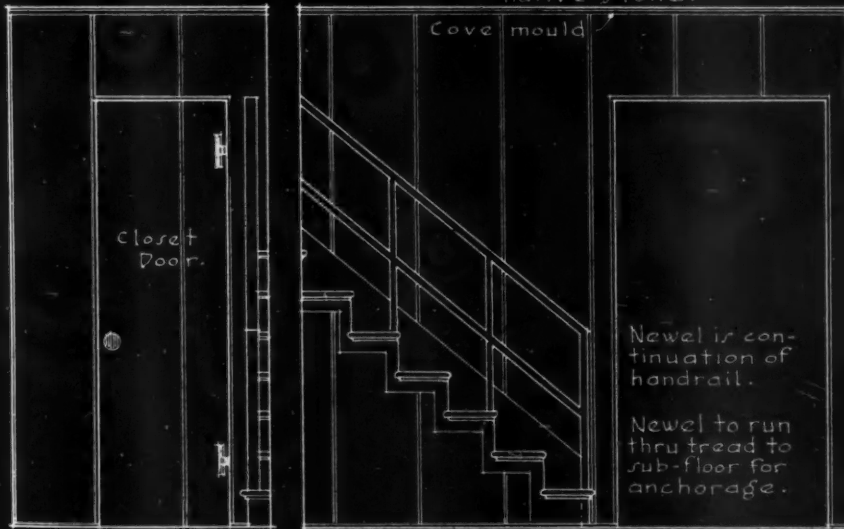 Cove mould
Closet
Door.
Newel is con-
tinuation of
handrail.
Newel to run
thru tread to
sub-floor for
anchorage.